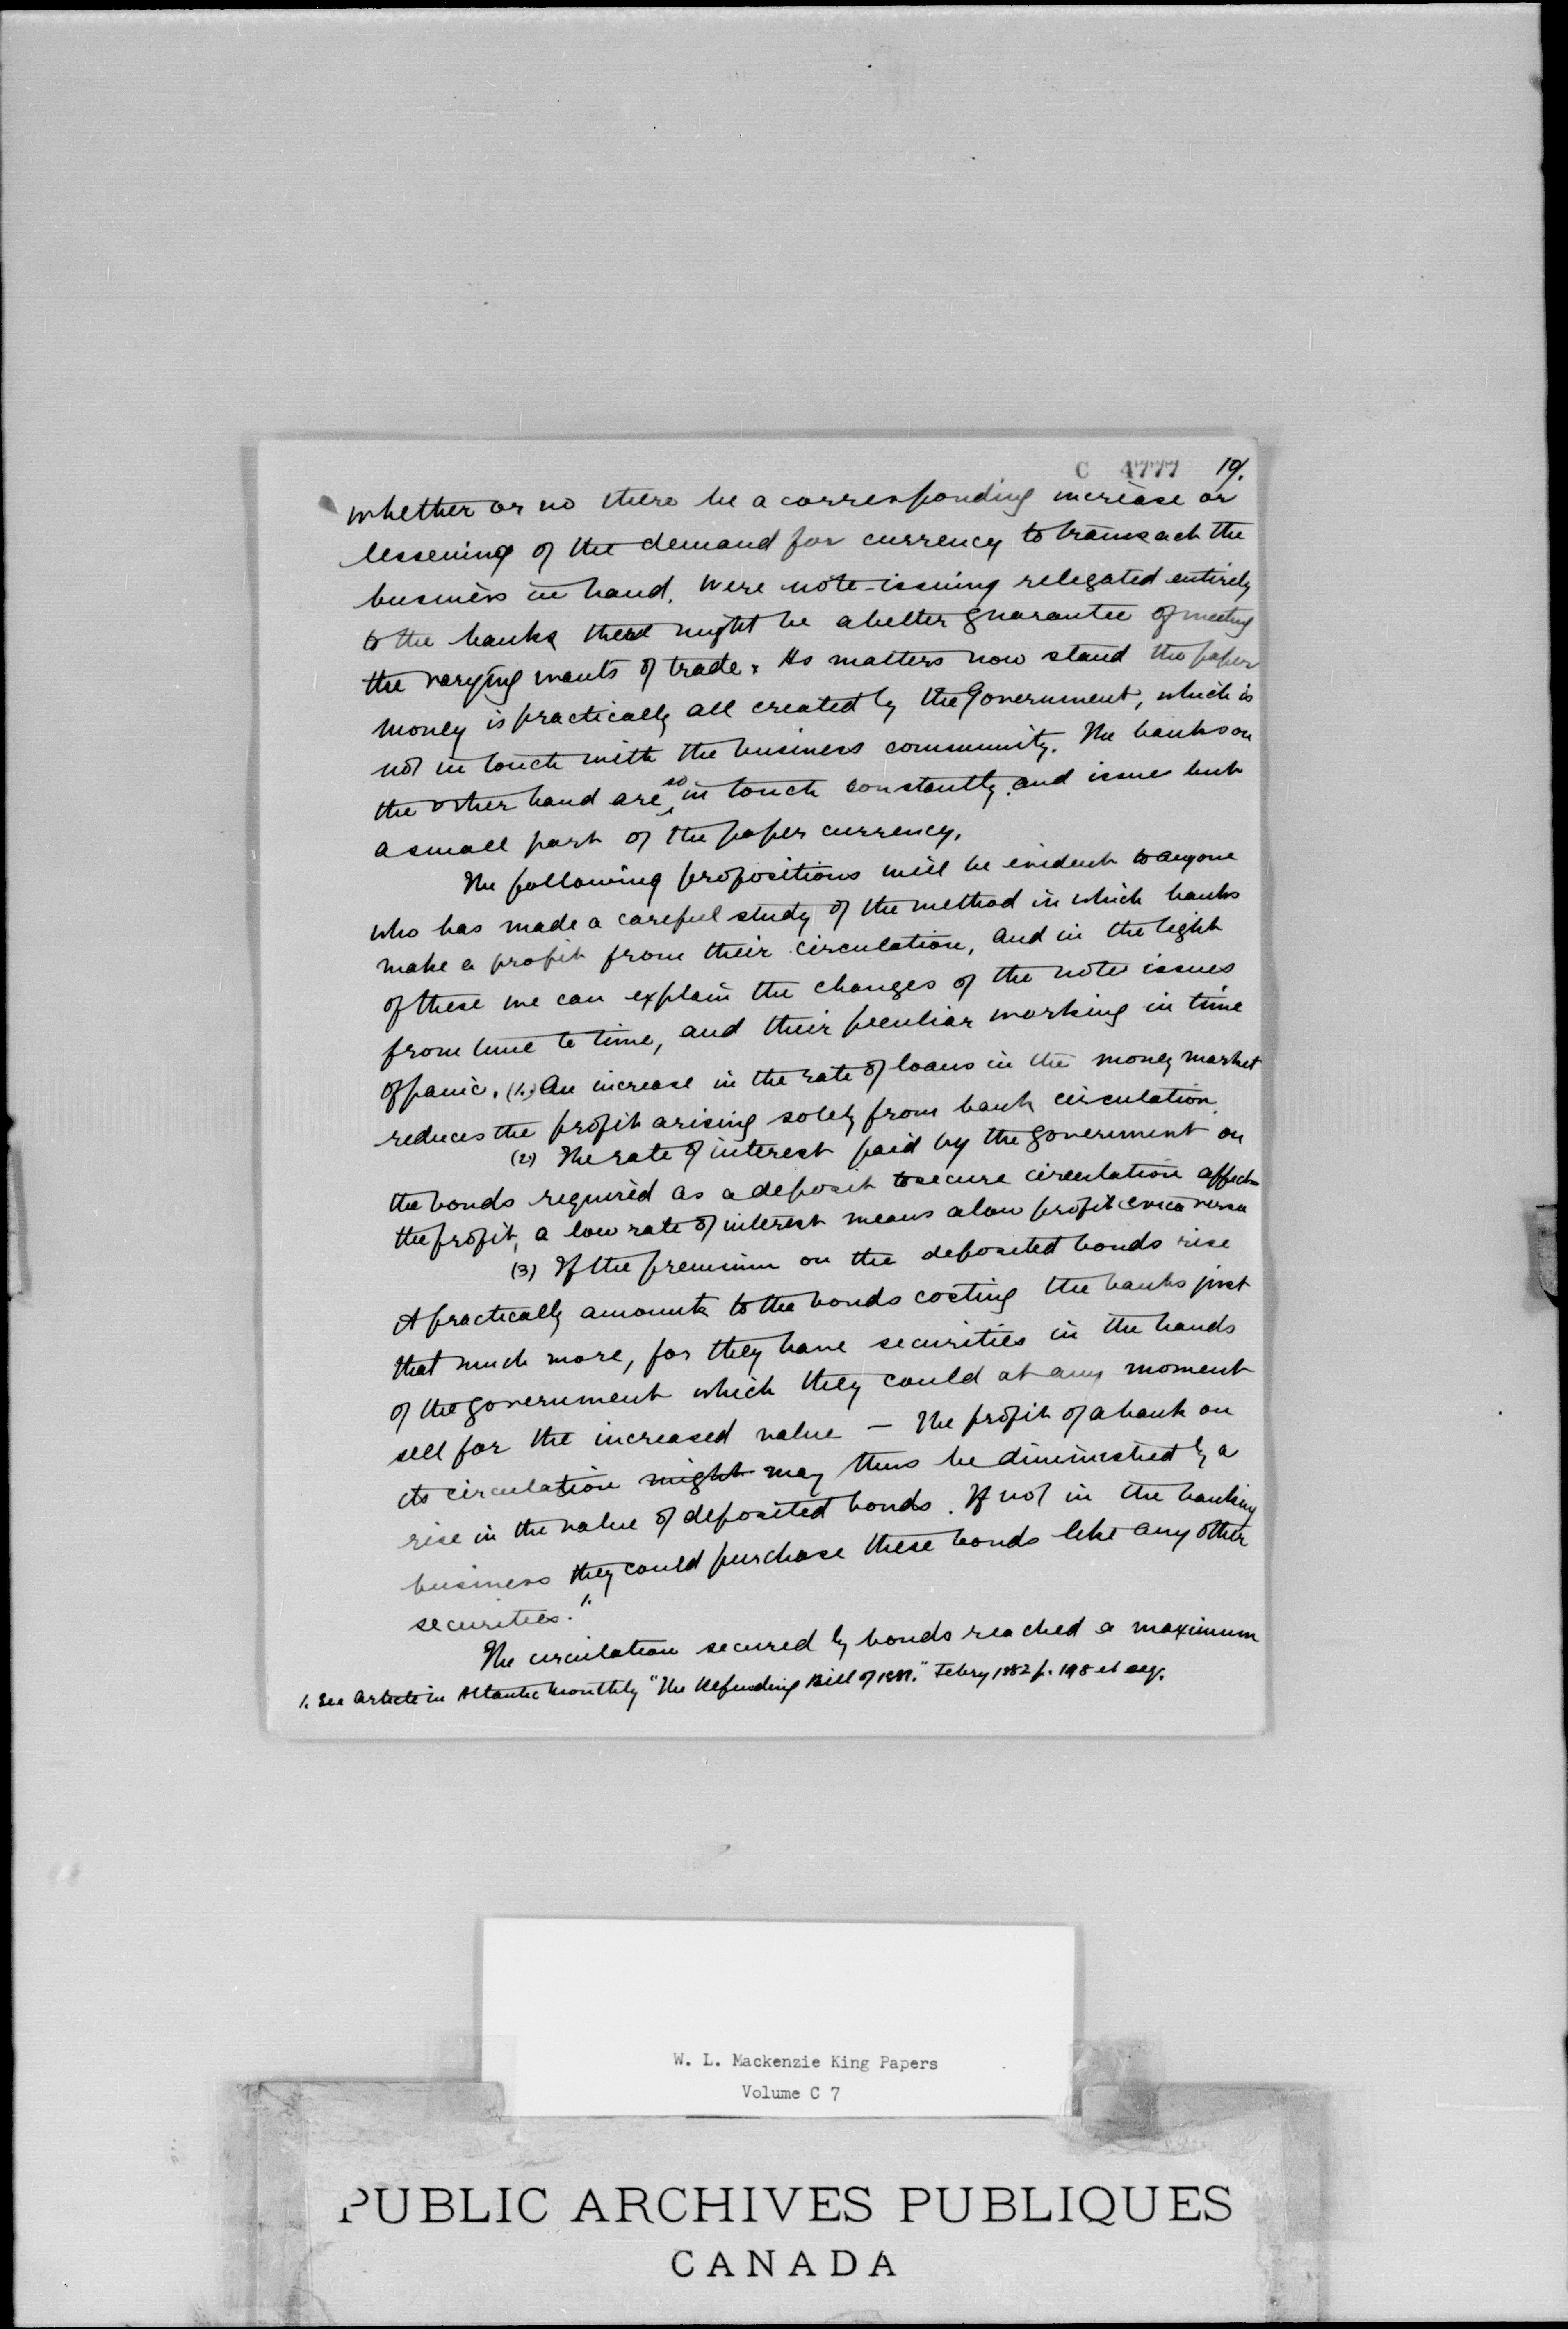 C 4777 19.
whether or no there be a corresponding increase or
lessening of the demand for currency to transact the
business in hand. Were note-issuing relegated entirely
to the banks there might be a better guarantee of meeting
the varying wants of trade. As matters now stand the paper
money is practically all created by the Government, which is
not in touch with the business community. The banks on
the other hand are so in touch constantly and issue but
a small part of the paper currency.
The following propositions will be evident to anyone
who has made a careful study of the method in which banks
make a profit from their circulation, and in the light
of these we can explain the changes of the note issues
from time to time, and their peculiar working in time
of panic. (1.) An increase in the rate of loans in the money market
reduces the profit arising solely from bank circulation.
(2) The rate of interest paid by the government on
the bonds required as a deposit to secure circulation affects
the profit, a low rate of interest means a low profit & vica versa
(3) If the premium on the deposited bonds rise
it practically amounts to the bonds costing the banks just
that much more, for they have securities in the hands
of the government which they could at any moment
sell for the increased value — The profit of a bank on
its circulation might may thus be diminished by a
rise in the value of deposited bonds. If not in the banking
business they could purchase these bonds like any other
securities." 1.
The circulation secured by bonds reached a maximum
1. See Article in Atlantic Monthly "The Refunding Bill of 1881." Febry 1882 p. 198 et seq.
W. L. Mackenzie King Papers
Volume C 7
PUBLIC ARCHIVES PUBLIQUES
CANADA